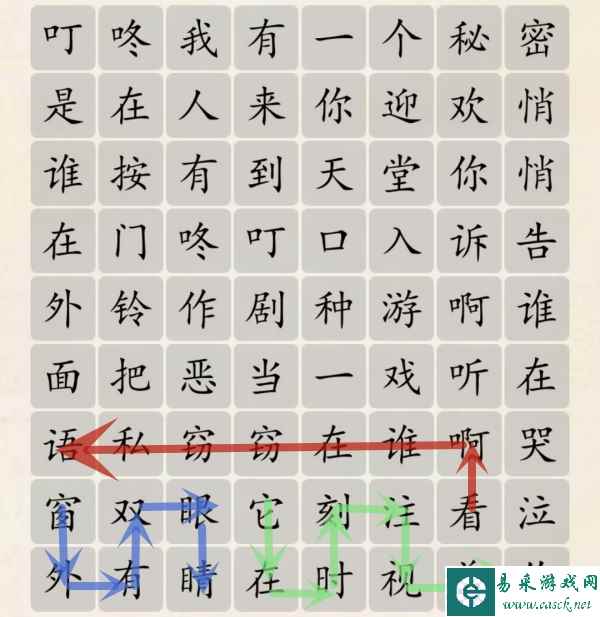 叮咚我有一个秘密
是在人来你迎欢悄
谁按有到天堂你悄
在门咚叮口入诉告
外铃作剧种游啊谁
面把恶当一戏听在
语私窃窃在谁啊哭
窗双眼它刻注看泣
外有睛在时视
易采游戏网
www.easck.net